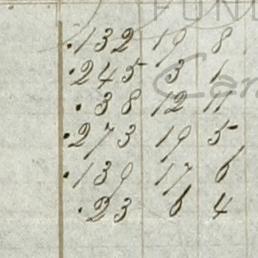 FUN
.132 19 8
.245 3 1
Car
.38 12 11
.273 19 5
.139 17 6
.23 6 4